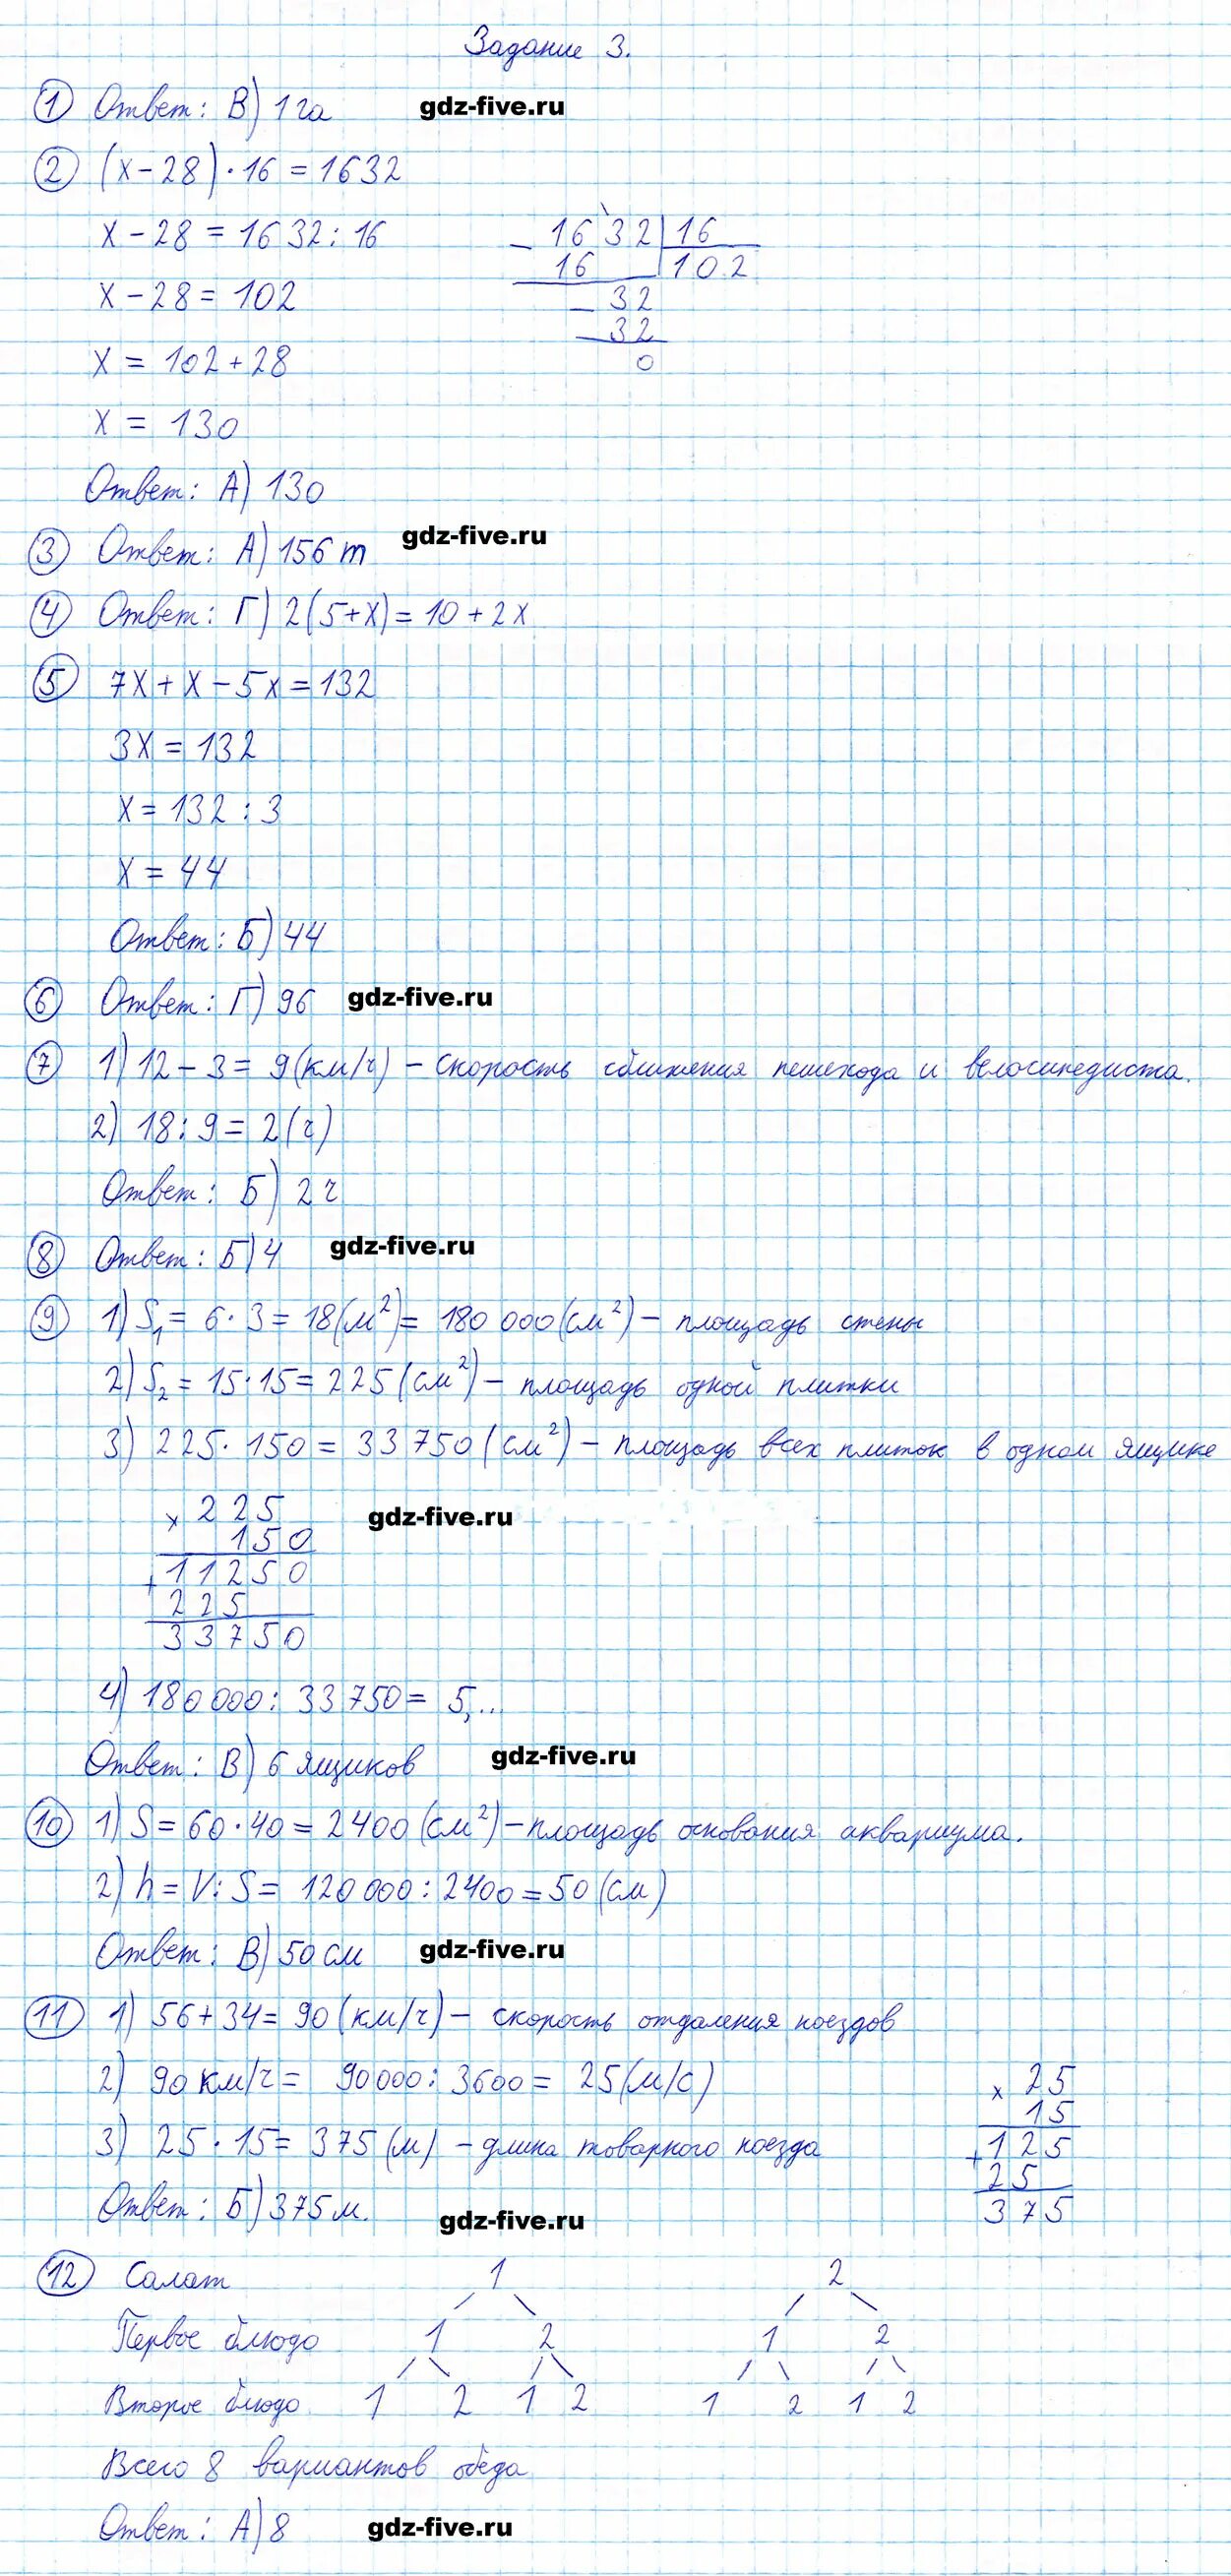 Задание 3.
① Ответ: В) 1 га gdz-five.ru
② (x – 28) · 16 = 1632
x – 28 = 1632 : 16
x – 28 = 102
x = 102 + 28
x = 130
1632 | 16
16 | 102
– 32
32
0
Ответ: А) 130
③ Ответ: А) 156 т gdz-five.ru
④ Ответ: Г) 2(5+x) = 10 + 2x
⑤ 7x + x – 5x = 132
3x = 132
x = 132 : 3
x = 44
Ответ: Б) 44
⑥ Ответ: Г) 96 gdz-five.ru
⑦ 1) 12 – 3 = 9 (км/ч) – скорость сближения пешехода и велосипедиста.
2) 18 : 9 = 2 (ч)
Ответ: Б) 2 ч
⑧ Ответ: Б) 4 gdz-five.ru
⑨ 1) S₁ = 6 · 3 = 18 (м²) = 180 000 (см²) – площадь стены
2) S₂ = 15 · 15 = 225 (см²) – площадь одной плитки
3) 225 · 150 = 33 750 (см²) – площадь всех плиток в одном ящике
× 225
150
+ 11250
225
33750
gdz-five.ru
4) 180 000 : 33 750 = 5,...
Ответ: В) 6 ящиков gdz-five.ru
⑩ 1) S = 60 · 40 = 2400 (см²) – площадь основания аквариума.
2) h = V : S = 120 000 : 2400 = 50 (см)
Ответ: В) 50 см gdz-five.ru
⑪ 1) 56 + 34 = 90 (км/ч) – скорость отдаления поездов
2) 90 км/ч = 90 000 : 3600 = 25 (м/с)
3) 25 · 15 = 375 (м) – длина товарного поезда
× 25
15
+ 125
25
375
Ответ: Б) 375 м. gdz-five.ru
⑫ Салат 1 2
Первое блюдо 1 2 1 2
Второе блюдо 1 2 1 2 1 2 1 2
Всего 8 вариантов обеда
Ответ: А) 8 gdz-five.ru